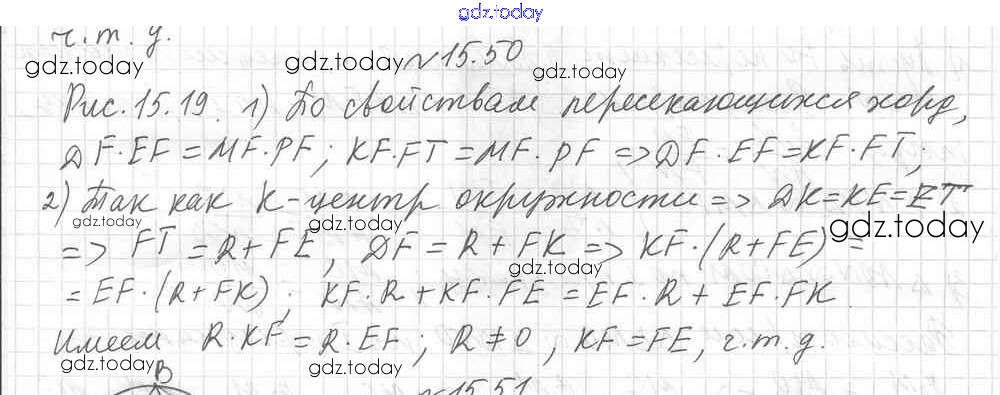 gdz.today
ч.т.д.
gdz.today gdz.today №15.50 gdz.today
Рис. 15.19. 1) По свойствам пересекающихся хорд,
ДF·EF = MF·PF; KF·FT = MF·PF => ДF·EF = KF·FT;
2) Так как K-центр окружности => ДK=KE=ET
gdz.today gdz.today gdz.today
=> FT = R + FE, ДF = R + FK => KF·(R+FE) =
gdz.today
= EF·(R+FK); KF·R + KF·FE = EF·R + EF·FK
gdz.today gdz.today
Имеем R·KF = R·EF; R ≠ 0, KF = FE, ч.т.д.
gdz.today gdz.today
B №15.51